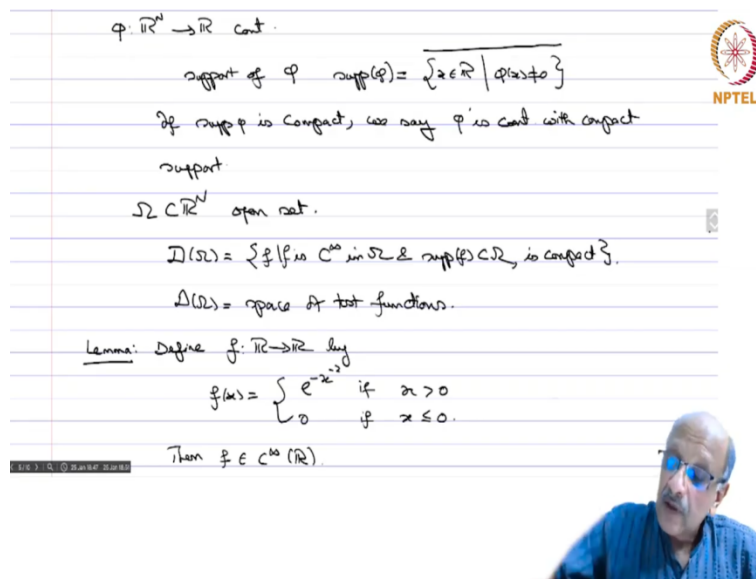 φ: ℝᴺ → ℝ cont.
support of φ supp(φ) = \overline{{x ∈ ℝ | φ(x) ≠ 0}}
If supp φ is compact, we say φ is cont. with compact
support.
Ω ⊂ ℝᴺ open set.
D(Ω) = {f | f is C^∞ in Ω & supp(f) ⊂ Ω, is compact}.
D(Ω) = space of test functions.
Lemma: Define f: ℝ → ℝ by
f(x) = { e^{-x^{-2}} if x > 0
0 if x ≤ 0.
Then f ∈ C^∞(ℝ).
NPTEL